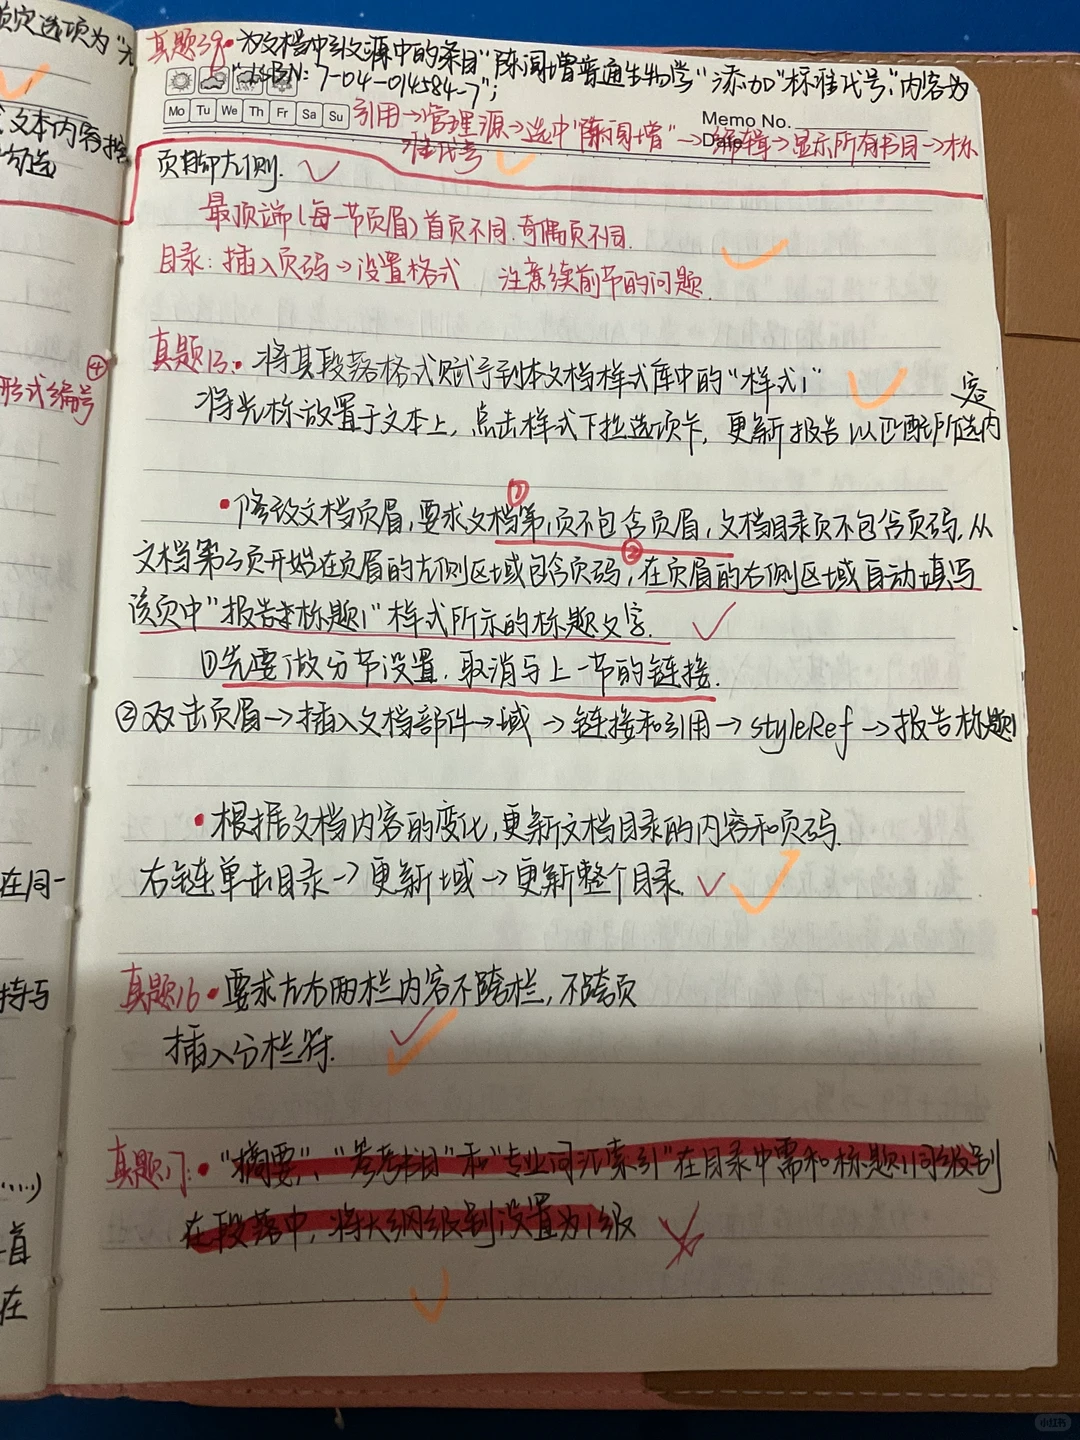 真题39·为文档中引文源中的条目"陈阅增普通生物学"添加"标准代号",内容为
"ISBN:7-04-014584-7";
Mo Tu We Th Fr Sa Su
Memo No.
引用→管理源→选中"陈阅增"→编辑→显示所有书目→标
准代号
页脚左侧.
最顶端(每一节页眉)首页不同.奇偶页不同.
目录:插入页码→设置格式 注意续前节的问题.
真题13:·将其段落格式赋予到本文档样式库中的"样式1"
将光标放置于文本上,点击样式下拉选项卡,更新报告以匹配所选内
容
·修改文档页眉,要求文档第1页不包含页眉,文档目录页不包含页码,从
①
文档第3页开始在页眉的左侧区域包含页码,在页眉的右侧区域自动填写
②
该页中"报告标题1"样式所示的标题文字.
①先要做分节设置.取消与上一节的链接.
②双击页眉→插入文档部件→域→链接和引用→styleRef→报告标题1
·根据文档内容的变化,更新文档目录的内容和页码.
右键单击目录→更新域→更新整个目录.
真题16·要求左右两栏内容不跨栏,不跨页
插入分栏符.
真题17:·"摘要"、"参考书目"和"专业词汇索引"在目录中需和标题1同级别
在段落中,将大纲级别设置为1级
指定选项为"无
文本内容控
勾选
④
形式编号
在同一
持与
.....)
首
在
小红书